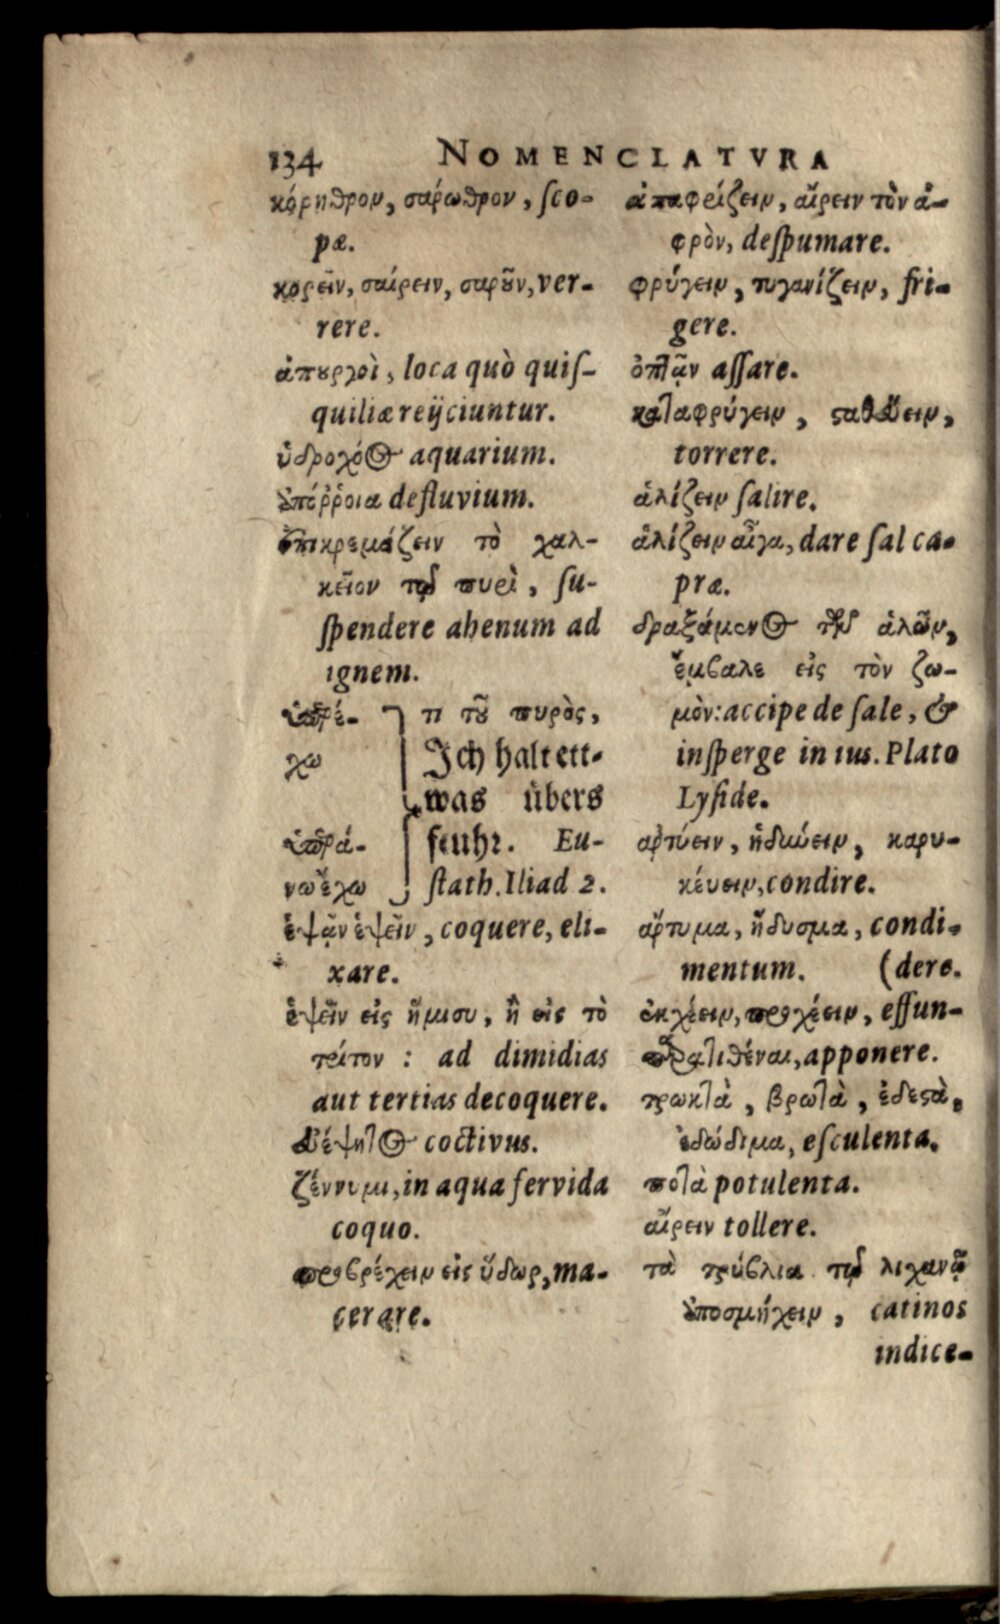 134 NOMENCLATVRA
κόρηθρον, σάρωθρον, ſco-
pæ.
κορεῖν, σαίρειν, σαροῦν, ver-
rere.
loca quò quiſ-
quiliæ reijciuntur.
ὑδροχόος aquarium.
defluvium.
ἐπικρεμάζειν τὸ χαλ-
κεῖον τῷ πυρὶ, ſu-
ſpendere ahenum ad
ignem.
ὑπερέ- τι τοῦ πυρὸς,
χω Ich halt ett-
was übers
ὑπεράνω feuhr. Eu-
ἔχω ſtath. Iliad 2.
ἑψᾷν ἑψεῖν, coquere, eli-
xare.
ἑψεῖν εἰς ἥμισυ, ἢ εἰς τὸ
τρίτον : ad dimidias
aut tertias decoquere.
coctivus.
ζέννυμι, in aqua fervida
coquo.
προβρέχειν εἰς ὕδωρ, ma-
cerare.
ἀπαφρίζειν, αἴρειν τὸν ἀ-
φρὸν, deſpumare.
φρύγειν, τηγανίζειν, fri-
gere.
ὀπτᾷν aſſare.
καταφρύγειν, σταθεύειν,
torrere.
ἁλίζειν ſalire.
ἁλίζειν αἶγα, dare ſal ca-
præ.
δραξάμενος τῶν ἁλῶν,
ἔμβαλε εἰς τὸν ζω-
μὸν: accipe de ſale, &
inſperge in ius. Plato
Lyſide.
ἀρτύειν, ἡδύνειν, καρυ-
κέυειν, condire.
ἄρτυμα, ἥδυσμα, condi-
mentum. (dere.
ἐκχέειν, προχέειν, effun-
παρατιθέναι, apponere.
τρωκτὰ, βρωτὰ, ἐδεστὰ,
ἐδώδιμα, eſculenta.
ποτὰ potulenta.
αἴρειν tollere.
τὰ τρύβλια τῷ λιχανῷ
ἀποσμήχειν, catinos
indice-